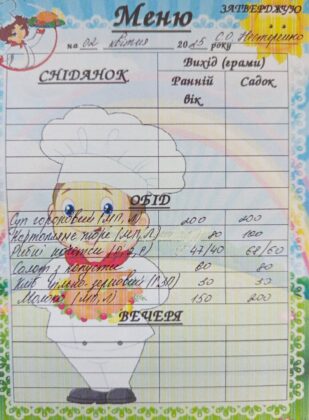 ЗАТВЕРДЖУЮ
Меню
на 02 квітня 2025 року С.О. Нестеренко
Вихід (грами)
СНІДАНОК Ранній вік Садок
ОБІД
Суп гороховий (МП, Л) 200 200
Картопляне пюре (МП, Л) 80 100
Рибні котлети 47/40 68/60
Салат з капусти 60 80
Хліб цільно-зерновий 30 30
Молоко (МП, Л) 150 200
ВЕЧЕРЯ